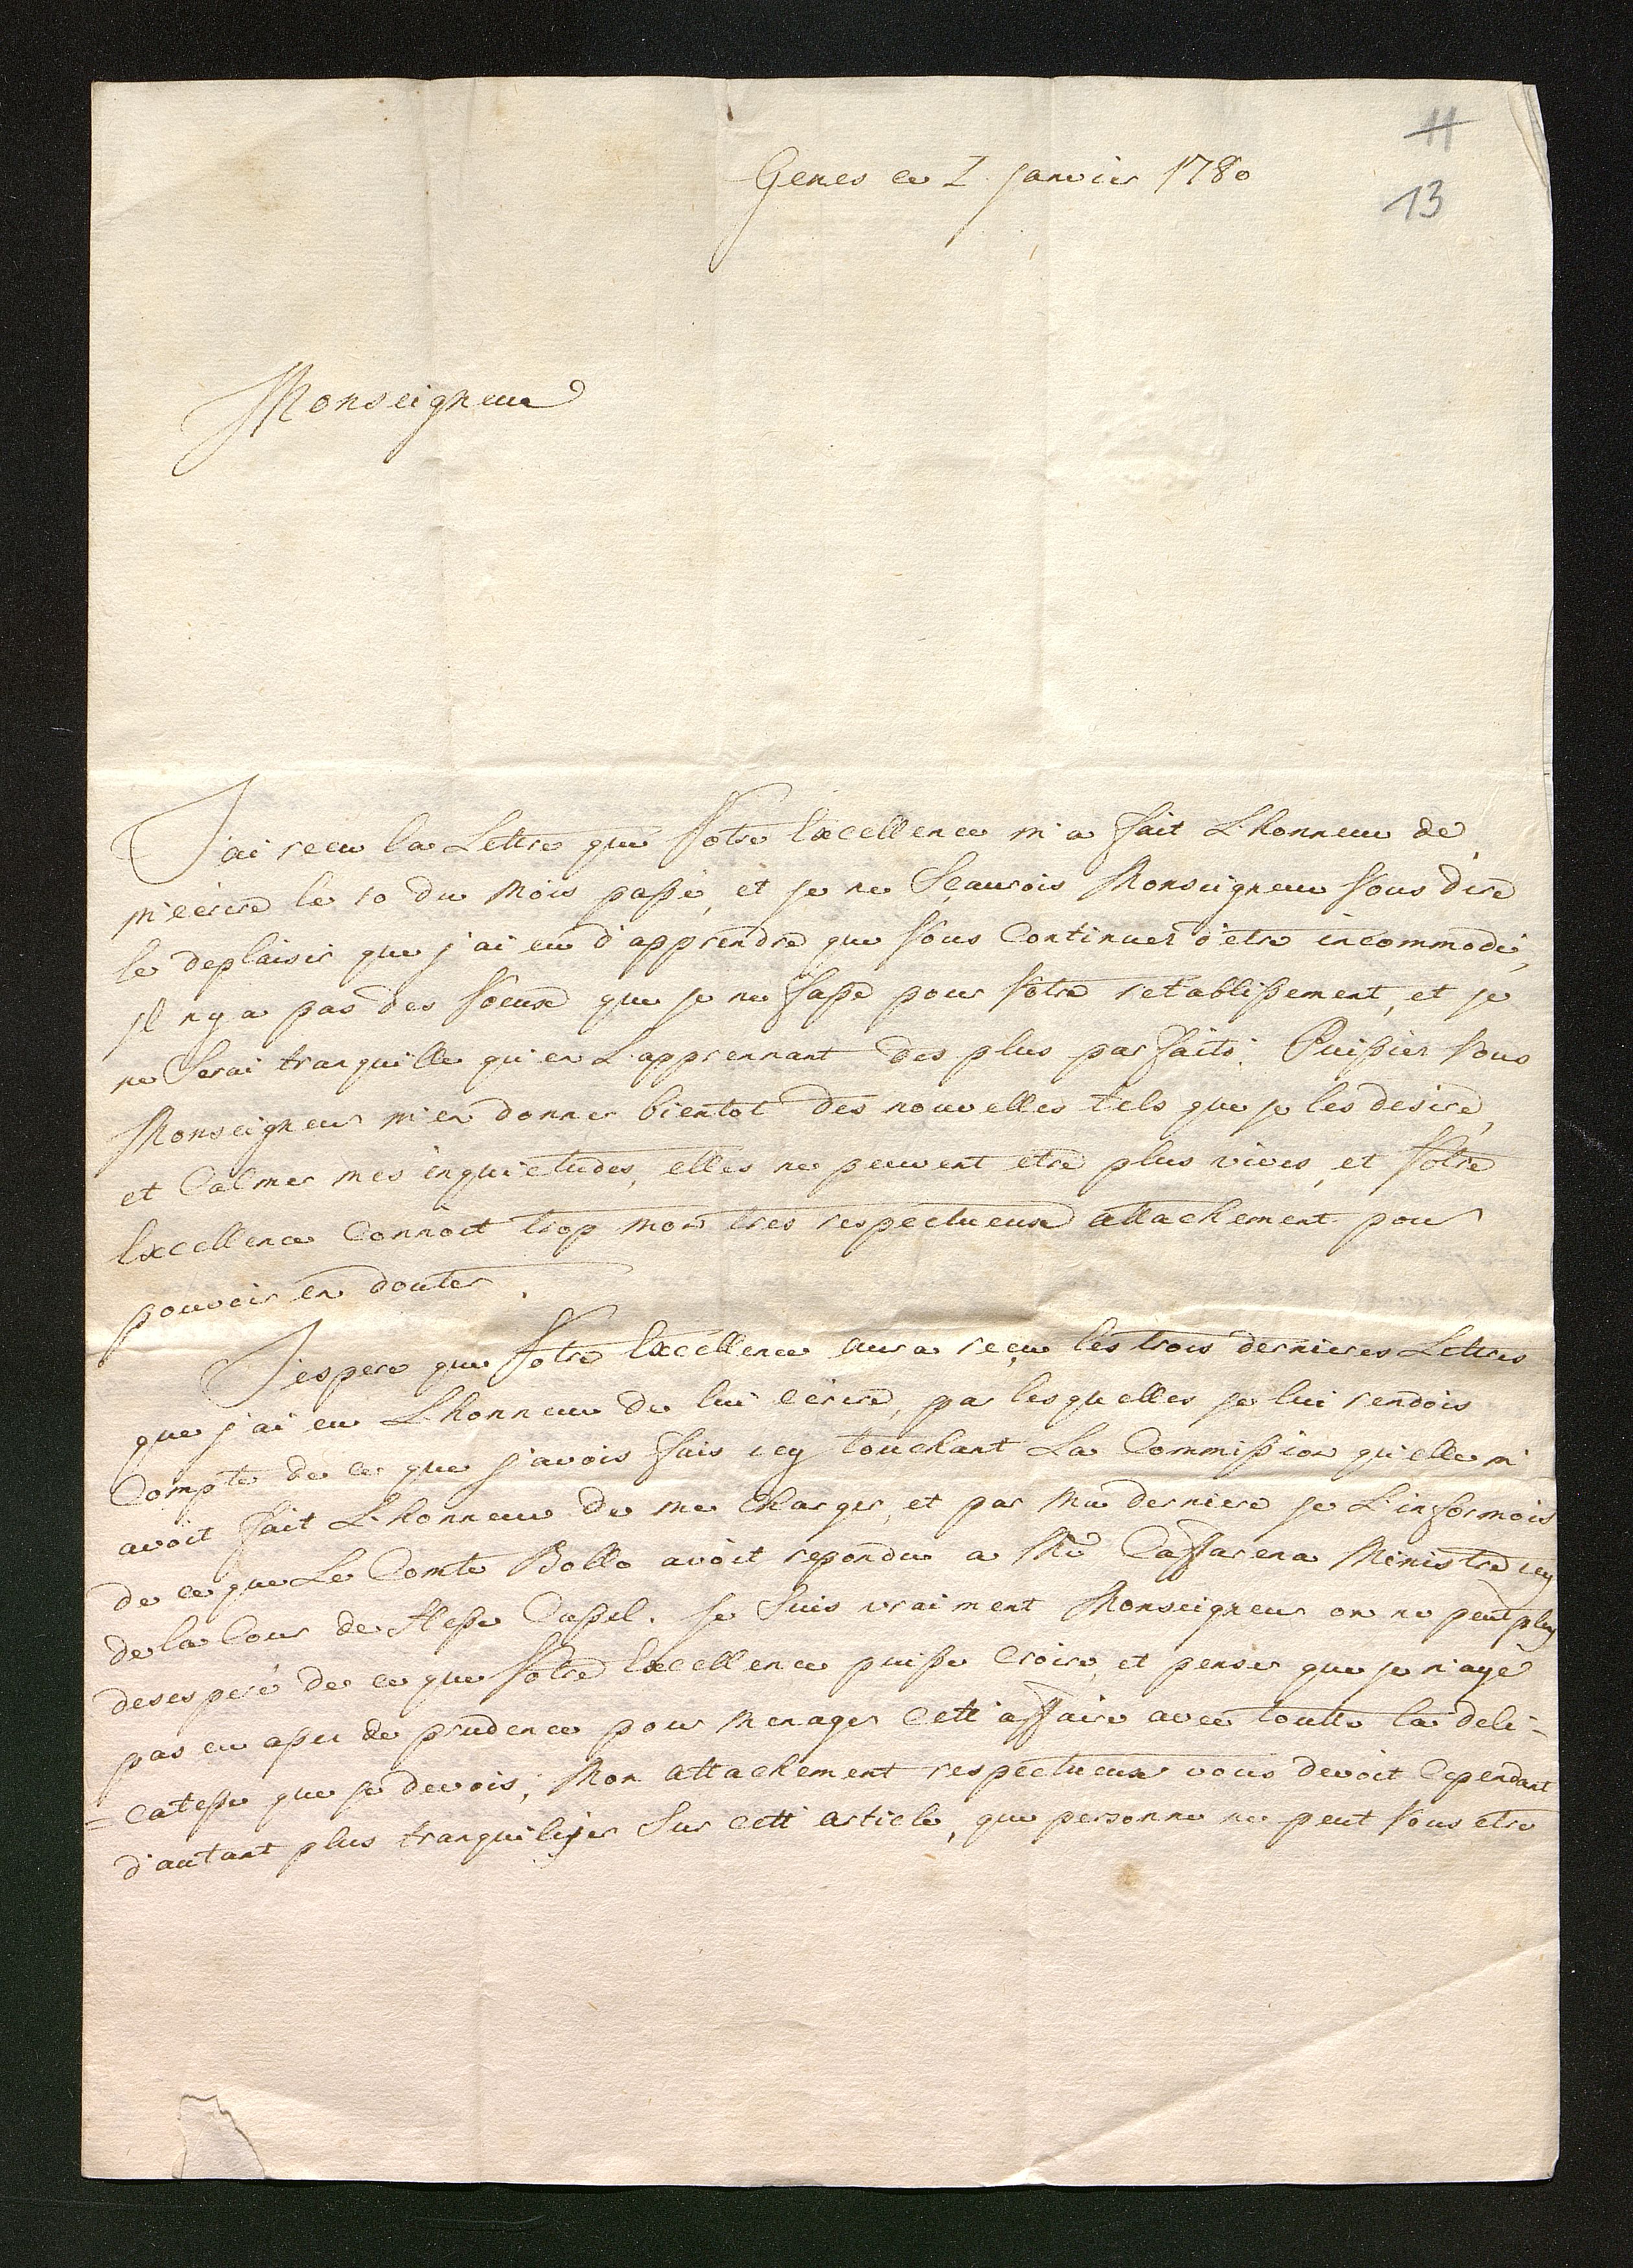 11
Genes ce 1 janvier 1780
13
Monseigneur
J'ai recu la Lettre que Votre Excellence m'a fait L'honneur de
m'ecrire le 10 du Mois passé, et je ne Sçaurois Monseigneur Vous dire
le deplaisir que j'ai eu d'apprendre que Vous Continuez d'etre incommodé,
Il n'y a pas des Voeux que je ne fasse pour Votre retablissement, et je
ne Serai tranquille qu'en L'apprennant des plus parfaits. Puissiez Vous
Monseigneur m'en donner bientot des nouvelles tels que je les desire,
et Calmer mes inquietudes, elles ne peuvent etre plus vives, et Votre
Excellence Connoit trop mon tres respectueux attachement pour
pouvoir en douter.
J'espere que Votre Excellence aura reçu les trois dernieres Lettres
que j'ai eu L'honneur de lui ecrire, par lesquelles je lui rendois
Compte de ce que j'avois fais icy touchant La Commission qu'elle m'
avoit fait L'honneur de me Charger, et par Ma derniere je L'informois
de ce que Le Comte Bollo avoit repondu a Mr Caffarena Ministre icy
de la Cour de Hesse Cassel. Je Suis vraiment Monseigneur on ne peut plus
desesperé de ce que Votre Excellence puisse Croire, et penser que je n'aye
pas eu assez de prudence pour Menager Cett'affaire avec toutte la deli=
=catesse que je devois; Mon attachement respectueux vous devoit Cependant
d'autant plus tranquiliser Sur Cett'article, que personne ne peut Vous etre